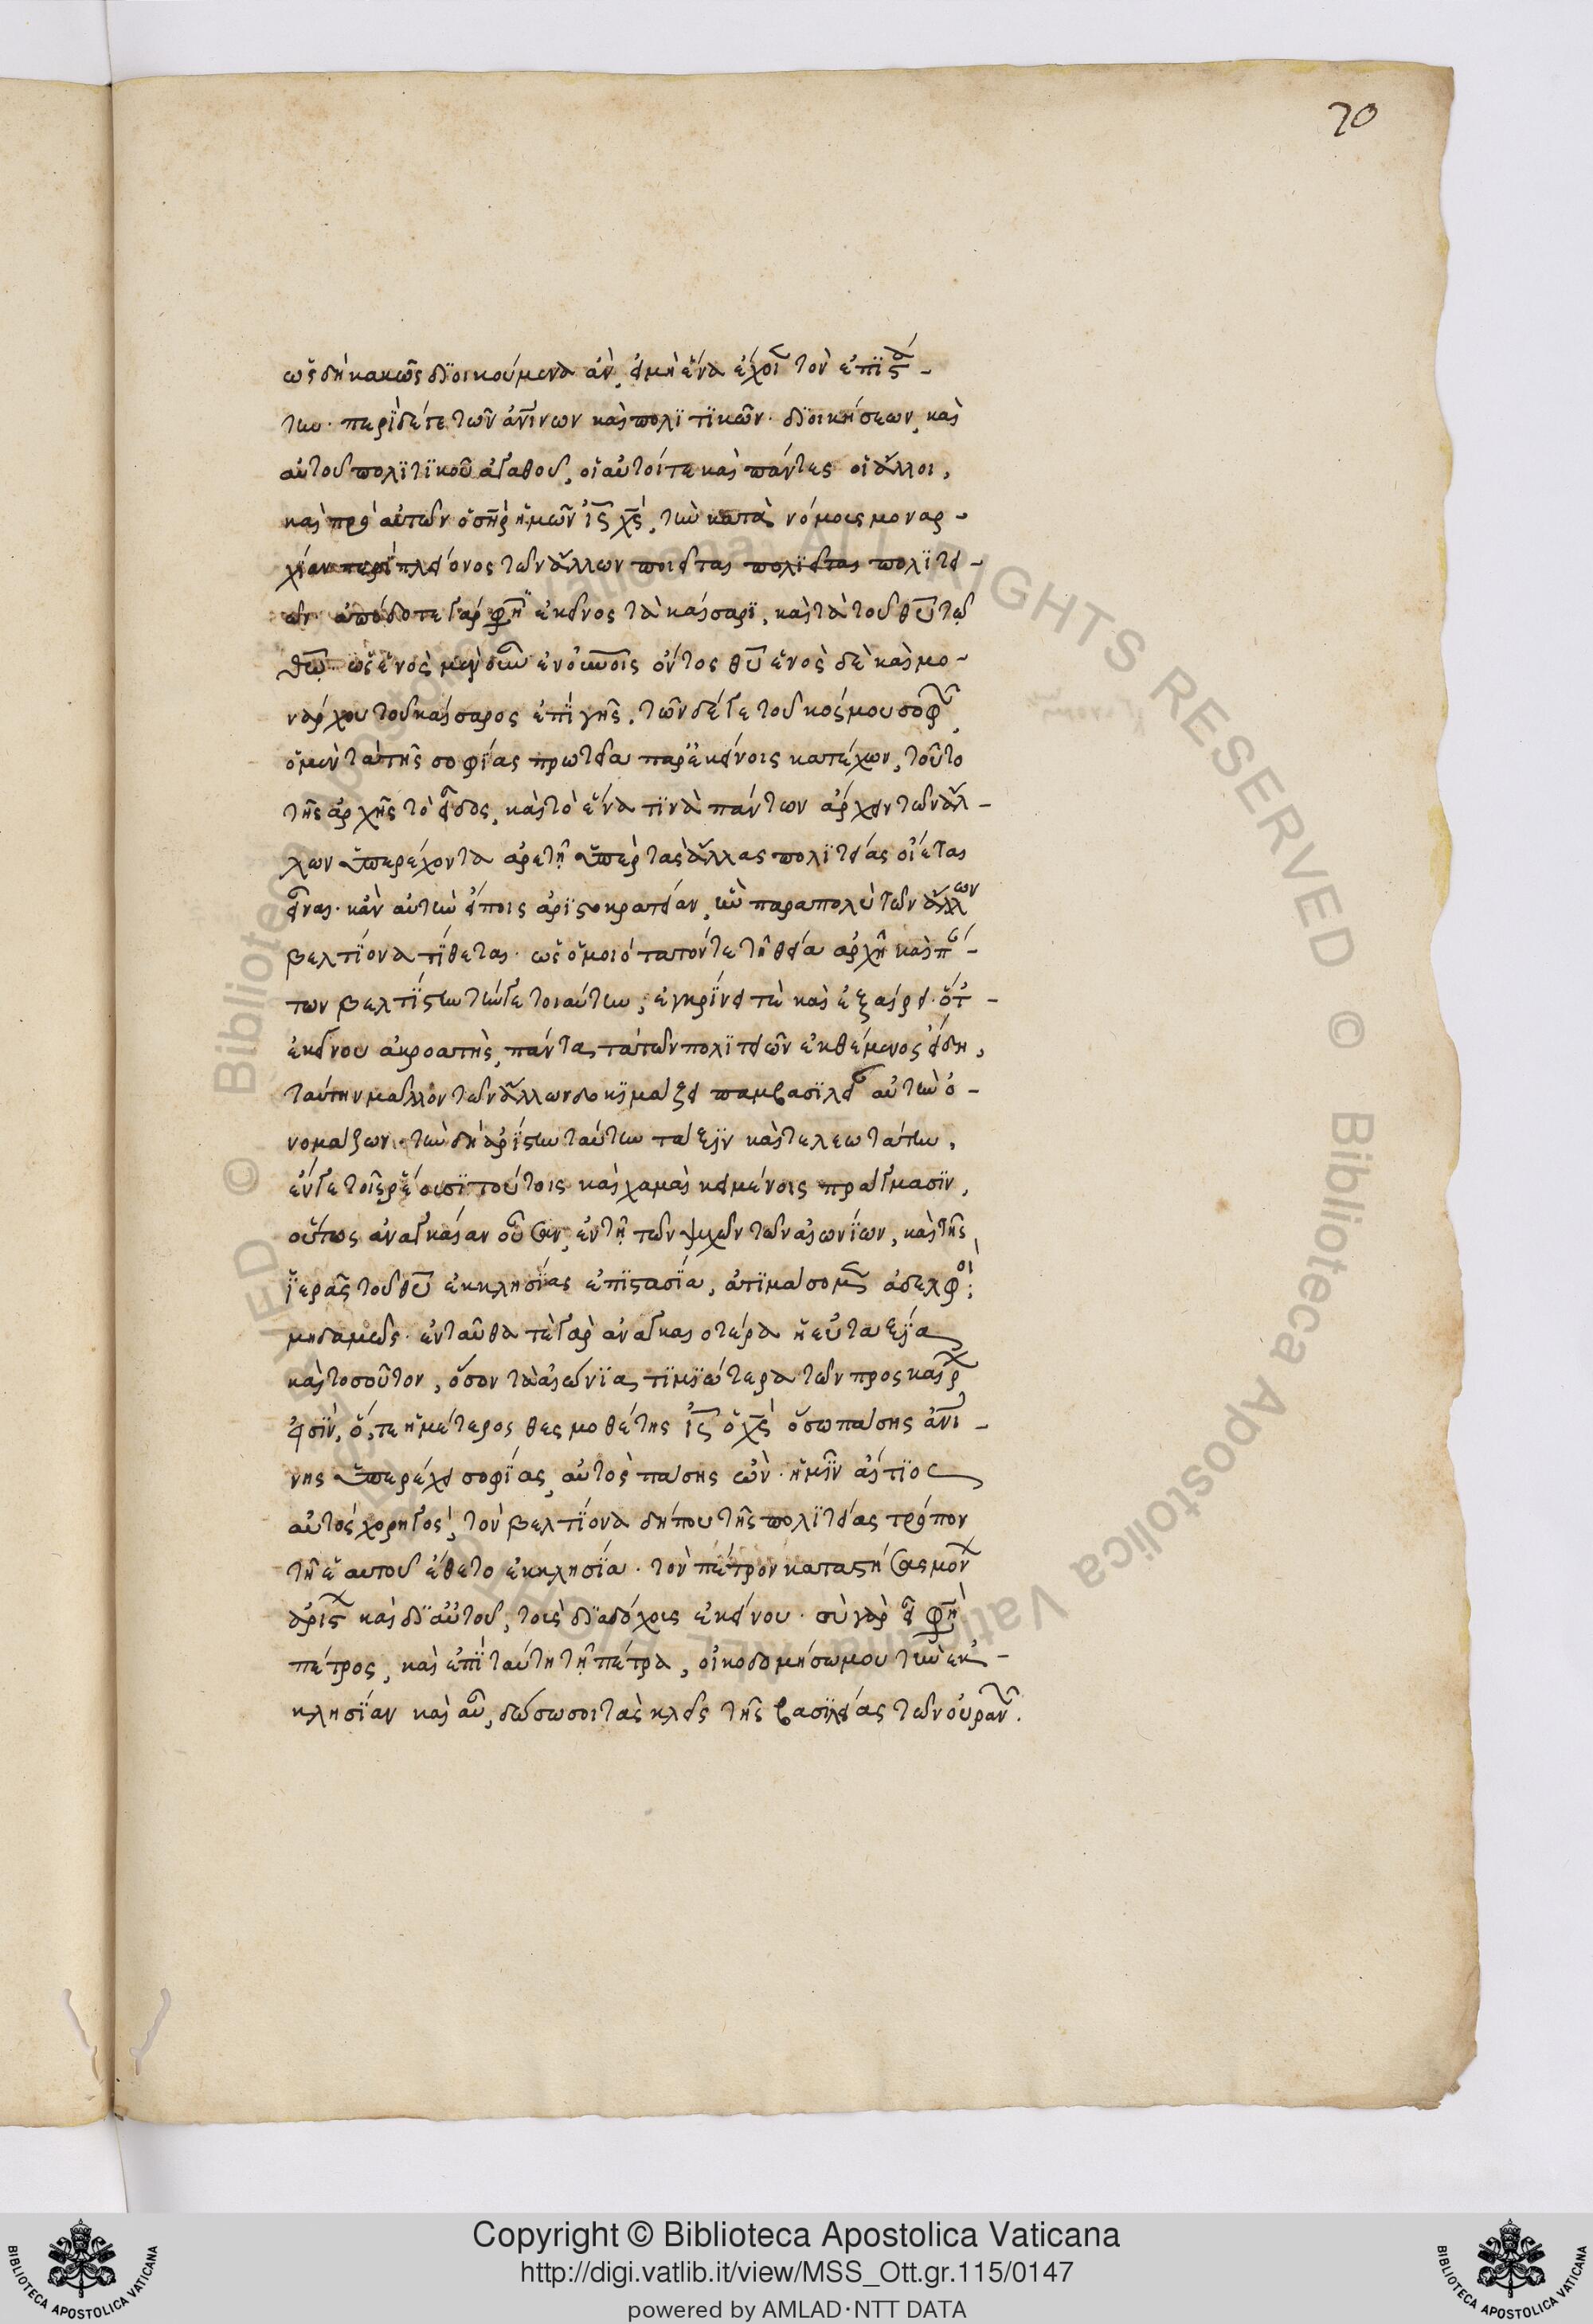 70
ὡς δὴ κακῶς διοικούμενα ἂν, εἰ μὴ ἕνα ἔχοι τὸν ἐπιστά-
την. περὶ δέ γε τῶν ἀνίνων καὶ πολιτικῶν διοικήσεων, καὶ
αὐτοῦ πολιτικοῦ ἀγαθοῦ, οἵ αὐτοί τε καὶ πάντες οἱ ἄλλοι,
καὶ πρὸ αὐτῶν ὁ σηρ ἡμῶν ις χς, τὴν κατὰ νόμους μοναρ-
χίαν περὶ πλείονος τῶν ἄλλων ποιεῖται πολιτει-
ῶν ἀπόδοτε γάρ φησιν ἐκεῖνος τὰ καίσαρι, καὶ τὰ τοῦ θυ τῷ
θω. ὡς ἑνὸς μὲν ἐν οὐνοῖς ὄντος θυ ἑνὸς δὲ καὶ μο-
νάρχου τοῦ καίσαρος ἐπὶ γῆς. τῶν δέ γε τοῦ κόσμου σοφῶν
ὁ μὲν τὰ τῆς σοφίας πρωτεῖα παρ' ἐκείνοις κατέχων, τοῦτο
τῆς ἀρχῆς τὸ εἶδος, καὶ τὸ ἕνα τινὰ πάντων ἄρχειν τῶν ἄλ-
λων ὑπερέχοντα ἀρετῇ ὑπὲρ τὰς ἄλλας πολιτείας οἴεται
εἶναι. κἂν αὐτὴν εἴποις ἀριστοκρατείαν, ὡς παραπολὺ τῶν ἄλλων
βελτίονα τίθεται. ὡς ὁμοιότατόν τε τῇ θεία ἀρχῇ καὶ πάν-
των βελτίστην τήν γε τοιαύτην, ἐγκρίνει τὲ καὶ ἐξαίρει. ὅ τ'
ἐκείνου ἀκροατὴς, πάντα τὰ τῶν πολιτειῶν ἐκθέμενος εἴδη,
ταύτην μᾶλλον τῶν ἄλλων δοκιμάζει παμβασιλείαν αὐτὴν ὀ-
νομάζων. τὴν δὴ ἀρίστην ταύτην τάξιν καὶ τελεωτάτην,
ἔν γε τοῖς ῥέουσι τούτοις καὶ χαμαὶ κειμένοις πράγμασιν,
οὕτως ἀναγκαίαν οὖσαν, ἐν τῇ τῶν ψυχῶν τῶν αἰωνίων, καὶ τῆς
ἱερᾶς τοῦ θυ ἐκκλησίας ἐπιστασία, ἀτιμάσομεν ἀδελφοὶ;
μηδαμῶς. ἐνταῦθα τὲ γὰρ ἀναγκαιοτέρα ἡ εὐταξία
καὶ τοσοῦτον, ὅσον τὰ αἰώνια, τιμιώτερα τῶν προσκαίρων
εἰσίν, ὅ, τε ἡμέτερος θεσμοθέτης ις ὁ χς ὅσω πάσης ἀνι-
νης ὑπερέχει σοφίας, αὐτὸς πάσης ὢν ἡμῖν αἴτιος
αὐτὸς χορηγός, τὸν βελτίονα δήπου τῆς πολιτείας τρόπον
τῇ ἑαυτοῦ ἔθετο ἐκκλησία. τὸν πέτρον καταστήσας μον
ἄριστ καὶ δι αὐτοῦ, τοῖς διαδόχοις ἐκείνου. σὺ γὰρ εἶ φησὶ
πέτρος, καὶ ἐπὶ ταύτη τῇ πέτρα, οἰκοδομήσω μου τὴν ἐκ-
κλησίαν καὶ αὖ, δώσω σοι τὰς κλεῖς τῆς βασιλείας τῶν οὐρανῶν.
Copyright © Biblioteca Apostolica Vaticana
http://digi.vatlib.it/view/MSS_Ott.gr.115/0147
powered by AMLAD·NTT DATA